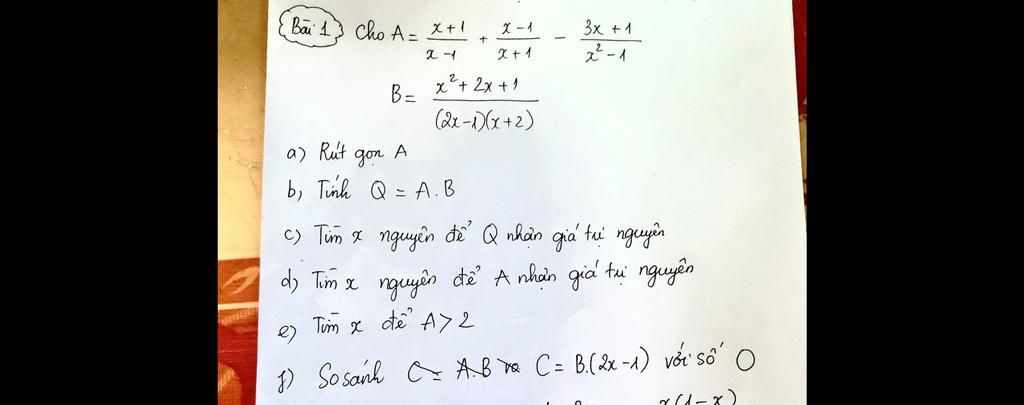 Bài 1) Cho A = \frac{x+1}{x-1} + \frac{x-1}{x+1} - \frac{3x+1}{x^2-1}
B = \frac{x^2+2x+1}{(2x-1)(x+2)}
a) Rút gọn A
b) Tính Q = A.B
c) Tìm x nguyên để Q nhận giá trị nguyên
d) Tìm x nguyên để A nhận giá trị nguyên
e) Tìm x để A > 2
f) So sánh C = A.B và C = B.(2x-1) với số 0
x(1-x)